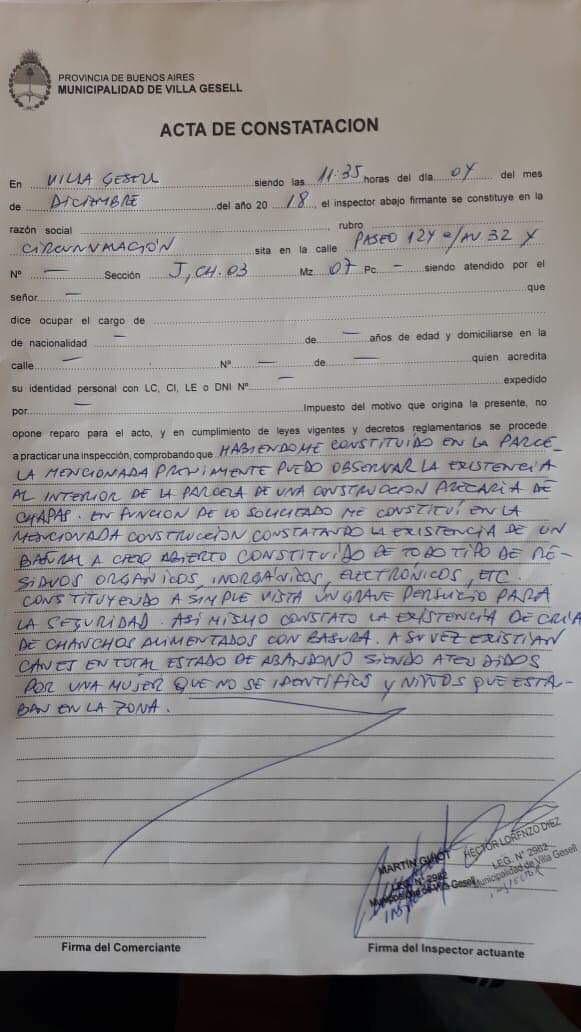 PROVINCIA DE BUENOS AIRES
MUNICIPALIDAD DE VILLA GESELL
ACTA DE CONSTATACION
En VILLA GESELL siendo las 11:35 horas del día 04 del mes
de DICIEMBRE del año 20 18, el inspector abajo firmante se constituye en la
razón social rubro
CIRCUNVALACIÓN sita en la calle PASEO 124 e/AV 32 Y
Nº — Sección J, CH. 03 Mz. 07 Pc. - siendo atendido por el
señor — que
dice ocupar el cargo de
de nacionalidad — de — años de edad y domiciliarse en la
calle — Nº — de — quien acredita
su identidad personal con LC, CI, LE o DNI Nº — expedido
por — Impuesto del motivo que origina la presente, no
opone reparo para el acto, y en cumplimiento de leyes vigentes y decretos reglamentarios se procede
a practicar una inspección, comprobando que HABIENDOME CONSTITUIDO EN LA PARCE-
LA MENCIONADA PREVIAMENTE PUEDO OBSERVAR LA EXISTENCIA
AL INTERIOR DE LA PARCELA DE UNA CONSTRUCCION PRECARIA DE
CHAPAS. EN FUNCION DE LO SOLICITADO ME CONSTITUÍ EN LA
MENCIONADA CONSTRUCCION CONSTATANDO LA EXISTENCIA DE UN
BASURAL A CIELO ABIERTO CONSTITUIDO DE TODO TIPO DE RE-
SIDUOS ORGÁNICOS, INORGÁNICOS, ELECTRÓNICOS, ETC.
CONSTITUYENDO A SIMPLE VISTA UN GRAVE PERJUICIO PARA
LA SEGURIDAD. ASI MISMO CONSTATO LA EXISTENCIA DE CRIA
DE CHANCHOS ALIMENTADOS CON BASURA. A SU VEZ EXISTIAN
CANES EN TOTAL ESTADO DE ABANDONO SIENDO ATENDIDOS
POR UNA MUJER QUE NO SE IDENTIFICO Y NIÑOS QUE ESTA-
BAN EN LA ZONA.
MARTÍN GUIOT
LEG. Nº 2982
Municipalidad de Villa Gesell
HECTOR LORENZO DIEZ
LEG. Nº 2982
Municipalidad de Villa Gesell
INSPECTOR
Firma del Comerciante
Firma del Inspector actuante